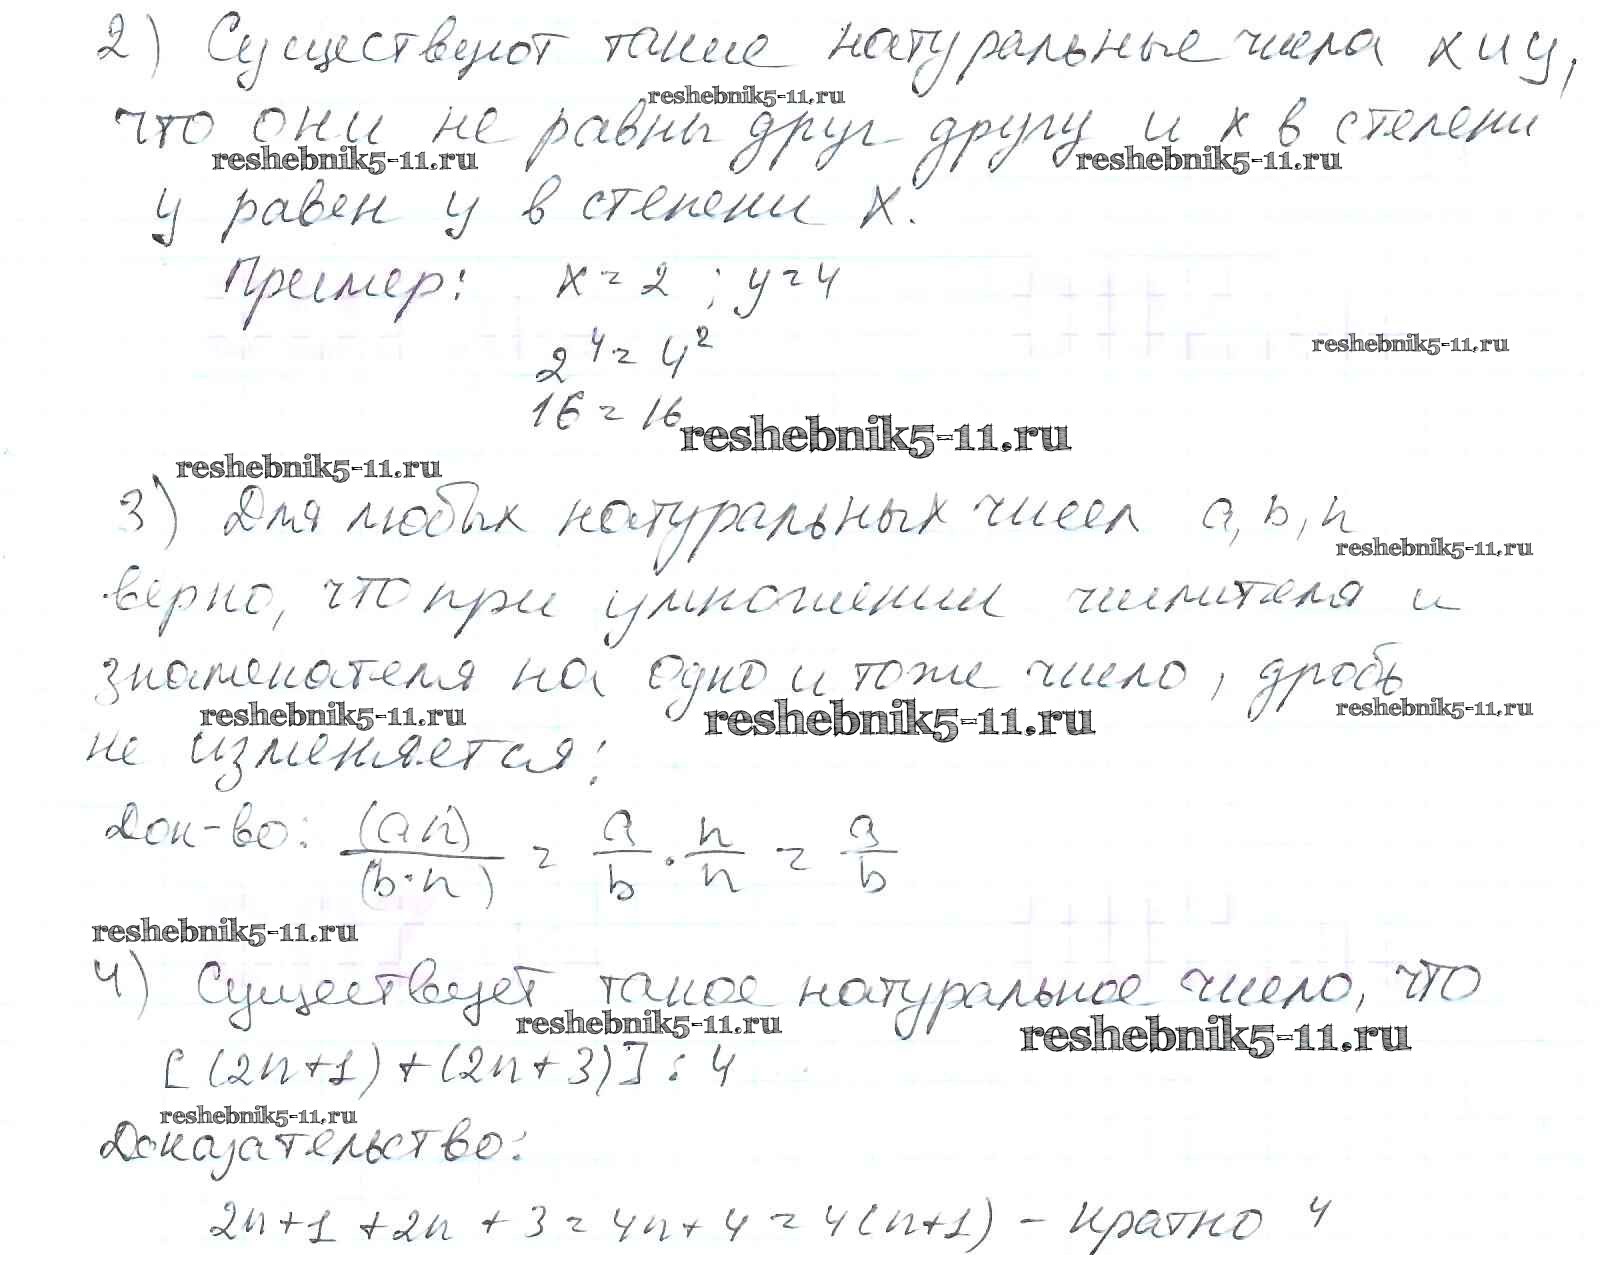 2) Существуют такие натуральные числа x и y,
reshebnik5-11.ru
что они не равны друг другу и x в степени
reshebnik5-11.ru reshebnik5-11.ru
y равен y в степени x.
Пример: x = 2 ; y = 4
2⁴ = 4²
reshebnik5-11.ru
16 = 16
reshebnik5-11.ru
reshebnik5-11.ru
3) Для любых натуральных чисел a, b, n
reshebnik5-11.ru
верно, что при умножении числителя и
знаменателя на одно и тоже число, дробь
reshebnik5-11.ru reshebnik5-11.ru reshebnik5-11.ru
не изменяется:
Док-во: (a·n)/(b·n) = a/b · n/n = a/b
reshebnik5-11.ru
4) Существует такое натуральное число, что
reshebnik5-11.ru reshebnik5-11.ru
[(2n+1) + (2n+3)] : 4
reshebnik5-11.ru
Доказательство:
2n+1 + 2n + 3 = 4n + 4 = 4(n+1) – кратно 4